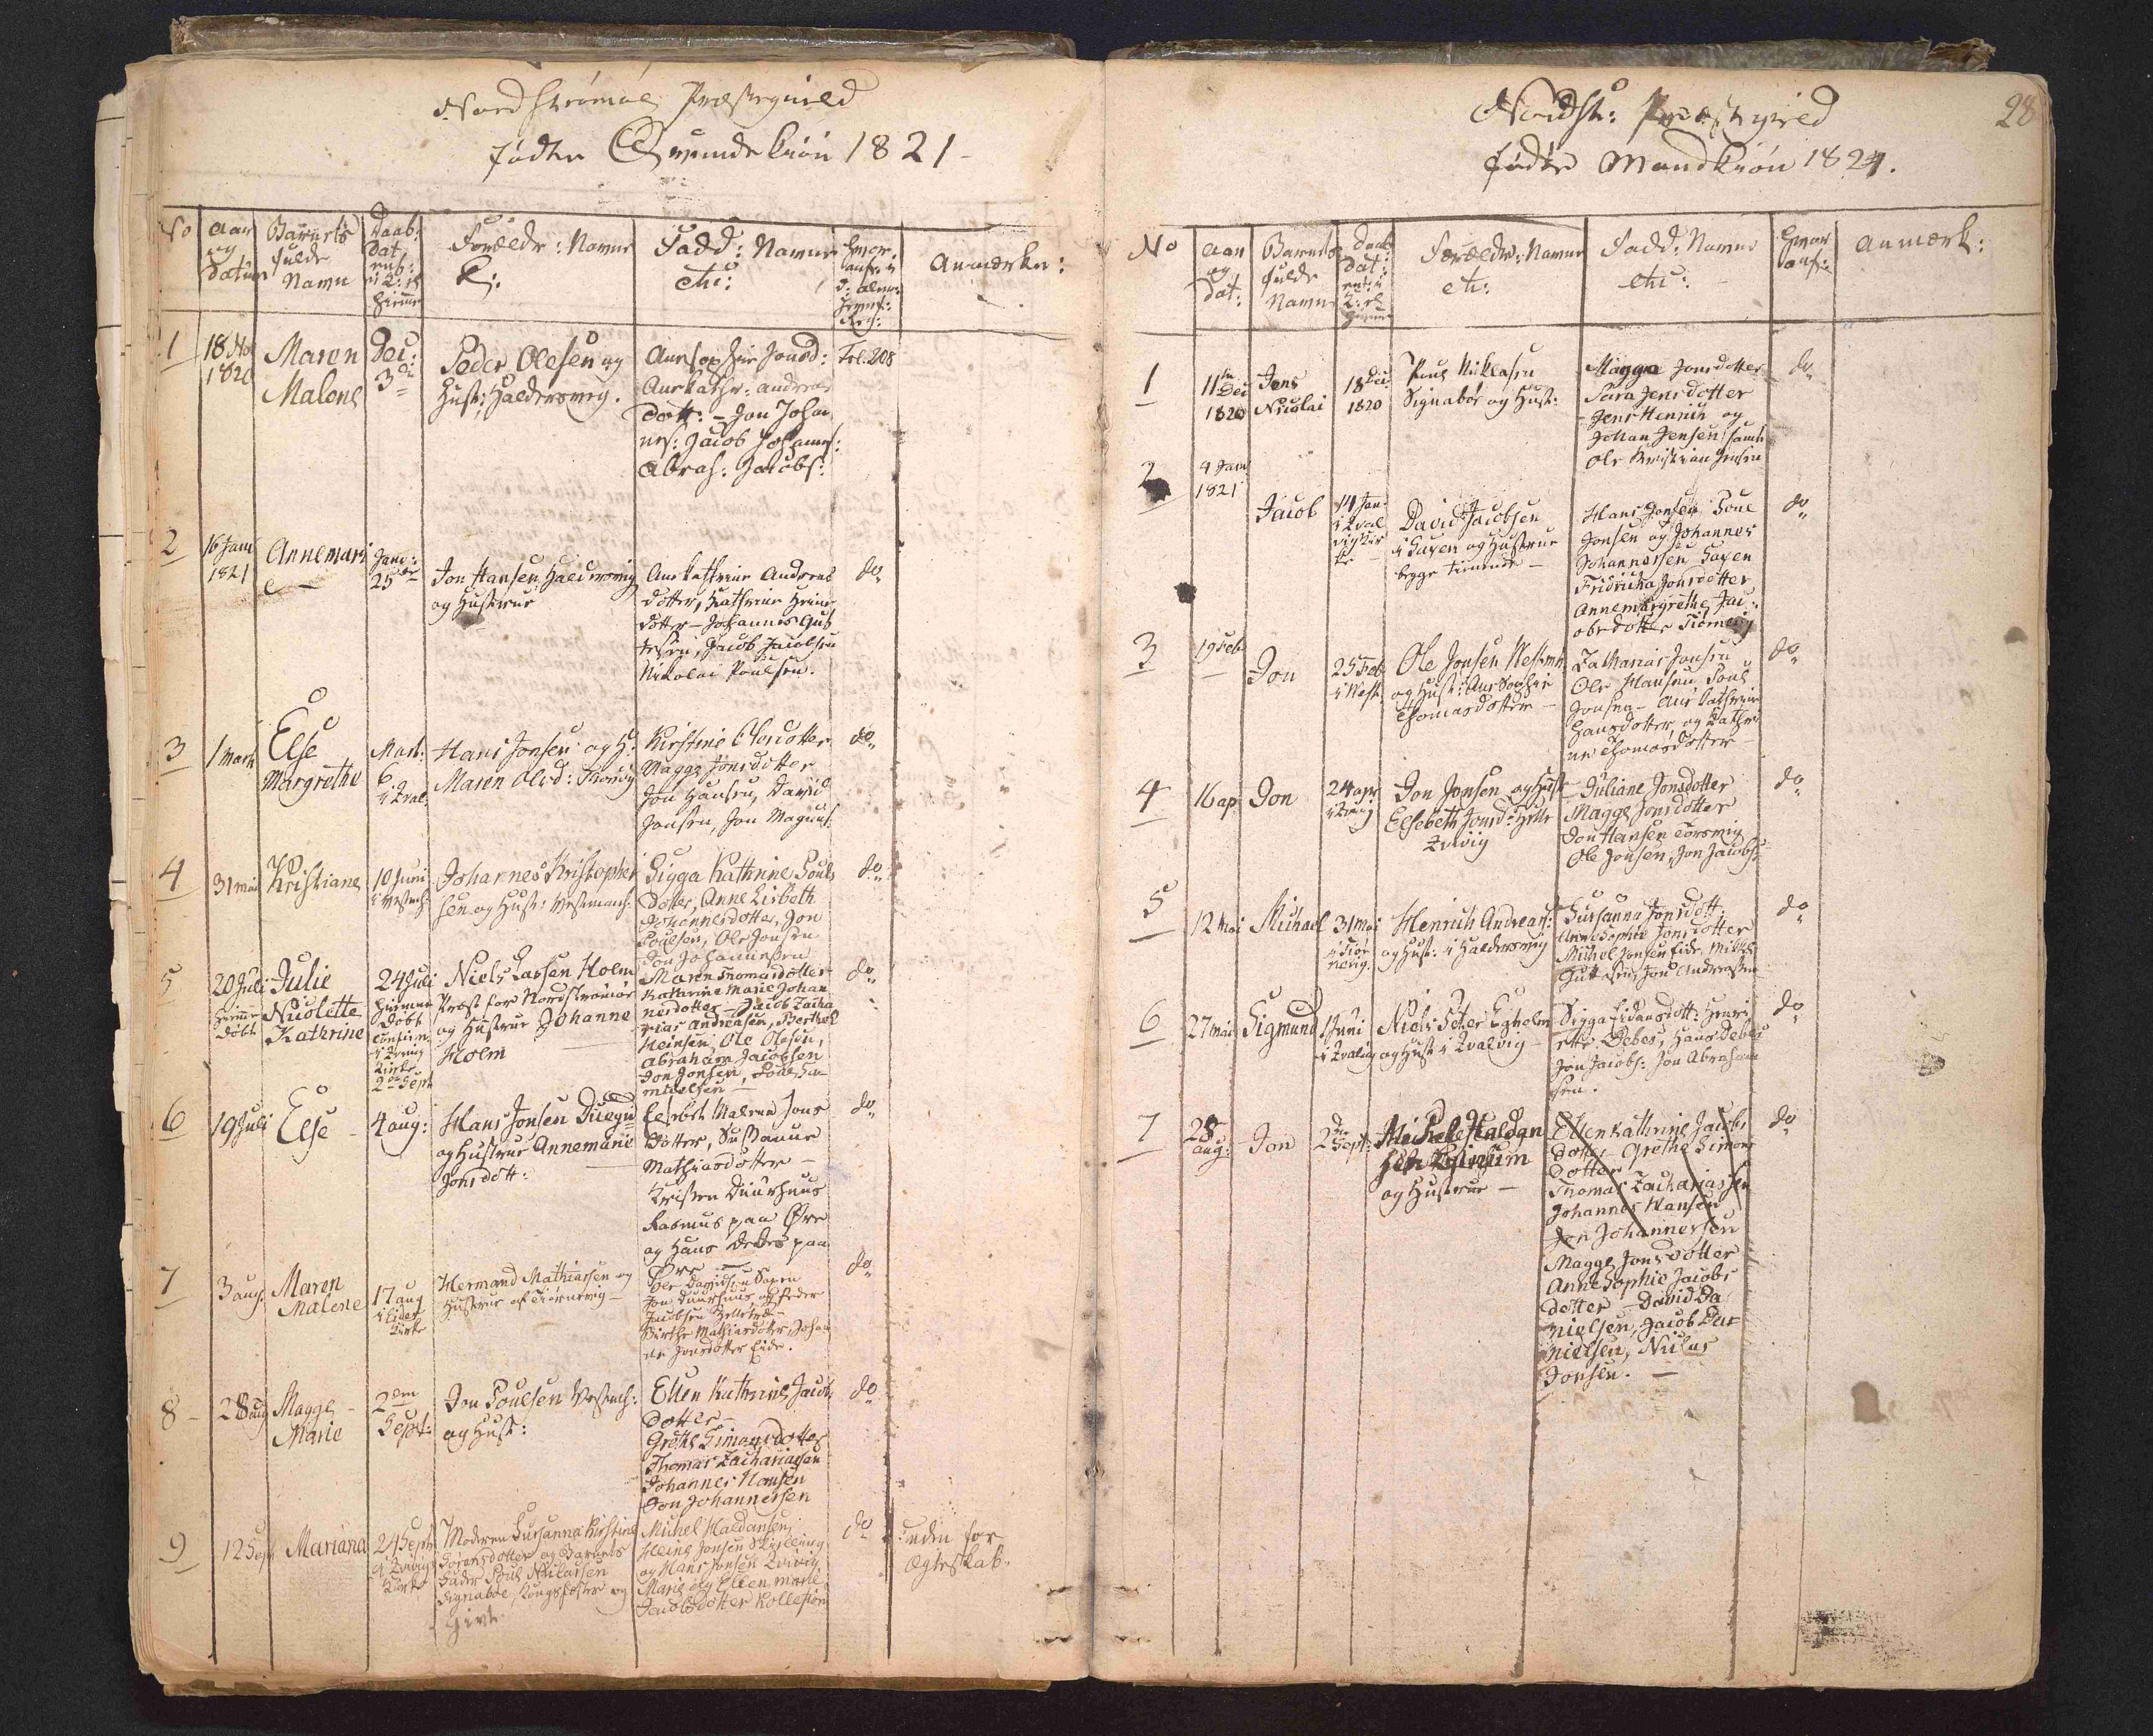 Nordstrømøe Præstegield
fødte Qvindekiøn 1821
No
Aar
og
Datum
Barnets
fulde
Navn
Daab:
Dat
Forældr: Navne
Fadd: Navne
etc:
Anmærkn:
1
18 No
1820
Maren
Malene
Dec:
3die
Peder Olesen og
Hust: Haldersvig.
Annsophie Jonsd:
Annkathr: Andreas
dott: – Jon Johan
nes: Jacob Johannes:
Abrah: Jacobs:
Fol. 208
2
16 Janu
1821
Annemari
e –
Janu:
25de
Jon Hansen Haldersvig
og Hustrue
Annkathrine Andreas
dotter, Kathrine Heine
dotter – Johannes Gut
tesen, Jacob Jacobsen
Nikolai Poulsen.
do
3
1 Marti
Else
Margrethe
Mart:
6
i Qval.
Hans Jonsen og H:
Maren Olsd:
Kirstine Olesdotter
Magge Jonsdotter
Jon Hansen, David
Jonsen, Jon Magnus:
do
4
31 Mai
Kristiane
10 Juni
i Vestmh:
Johannes Kristopher
sen og Hust: Vestmanh:
Sigga Kathrine Pouls
dotter, Anne Lisbeth
Johannesdotter, Jon
Poulsen, Ole Jonsen
Jon Johannessen
do
5
20 Juli
hiemme
døbt
Julie
Nicolette
Katerine
24 Juli
hiemme
døbt
confirm.
i Qvivig
Kirke
2den Sept
Niels Larsen Holm
Præst for Nordstrømøe
og Hustrue Johanne
Holm
Maren Thomasdotter
Katharine Marie Johan
nesdotter – Jacob Zacha
rias Andreasen, Berthel
Heinsen, Ole Olesen,
Abraham Jacobsen
Jon Jonsen, Poul Sa
muelsen
do
6
19 Juli
Else
4 Aug:
Hans Jonsen Duegd
og Hustrue Annemarie
Jonsdott:
Elsebet Malena Jons
dotter, Susanne
Mathiasdotter –
Kristen Duurhuus
Rasmus paa Øre
og Hans Debes paa
Øre
do
7
3 aug.
Maren
Malene
17 aug
i Eides
Kirke
Hermand Mathiassen og
Hustrue af Tiørnevig –
Ole Davidsen Saxen
Jon Duurhuus og Peder
Jacobsen
Birthe Mathiasdotter, Johan
ne Jonsdotter Eide.
do
8
28 aug
Magge
Marie
2den
Sept:
Jon Poulsen Vestmh:
og Hust:
Ellen Kathrine Jacobs
dotter –
Grethe Simonsdotter
Thomas Zachariasen
Johannes Hansen
Jon Johannessen
do
9
12 Sep
Mariana
24 Sept
i Qvivigs
Kirke
Moderen Susanna Kirstine
Sørensdotter og Barnets
Fader Poul Niclasen
Signabøe, Kongsfæster og
Givt
Michel Haldansen,
Heine Jonsen
og Hans Jonsen Qvivig
Marie og Ellen Marie
Jacobsdotter Kollefiord
do
uden for
Ægteskab.
28
Nordst: Præstegield
fødte Mandkiøn 1821.
No
Aar
og
Dat:
Barnets
fulde
Navne
Daab
Dat:
Forældr: Navne
etc:
Fadd: Navne
etc:
Anmærk:
1
11te
Dec
1820
Jens
Nicolai
18 Dec:
1820
Poul Nicklasen
Signabør og Hust:
Magga Jonsdotter
Sara Jensdotter
Jens Hensen og
Johan Jensen samt
Ole Kristian Jensen
do
2
4 Janu
1821
Jacob
14 Jan
i Qval
vig Kir
ke –
David Jacobsen
i Saxen og Hustrue
begge tienende –
Hans Jonsen, Poul
Jonsen og Johannes
Johannessen Saxen
Fridricka Jonsdotter
Annemargrethe Jac:
obsdotter Tiørnevig
do
3
19 Feb
–
Jon
25 Feb
i Vestm
Ole Jonsen Vestmh
og Hust: Ane Sophie
Thomasdotter –
Zacharias Jonsen
Ole Hansen Poul
Jonsen – Ane Cathrine
Hansdotter og Cathri
ne Thomasdotter –
do
4
16 ap
Jon
24 apr
i Qvivig
Jon Jonsen og Hust
Elsebeth Jonsd:
Qvivig
Juliane Jonsdotter
Magge Jonsdotter
Jon Hansen
Ole Jonsen, Jon Jacobs:
do
5
12 Mai
Michael
31 Mai
i Tiør
nevig.
Henrich Andreas:
og Hust: i Haldersvig
Sussanna Jonsdott:
Anne Sophie Jonsdotter
Michel Jonsen Eide, Michel
Guttesen, Jon Andreassen
do
6
27 Mai
Sigmund
1 Juni
i Qvalvig
Niels Peter Egholm
og Hust: i Qvalvig –
Sigga Eidansdott: Henri
ette Debes, Hans Debes
Jon Jacobs: Jon Abraham
sen.
do
7
28
aug:
Jon
2den
Sept:
Michel Haldan
sen
og Hustrue –
Ellen Kathrine Jacobs
dotter – Grethe Simons
dotter
Thomas Zachariassen
Johannes Hansen
Jon Johannessen
Magge Jonsdotter
Anne Sophie Jacobs
dotter – David Da
nielsen, Jacob Da
nielsen, Niclas
Jonsen. –
do